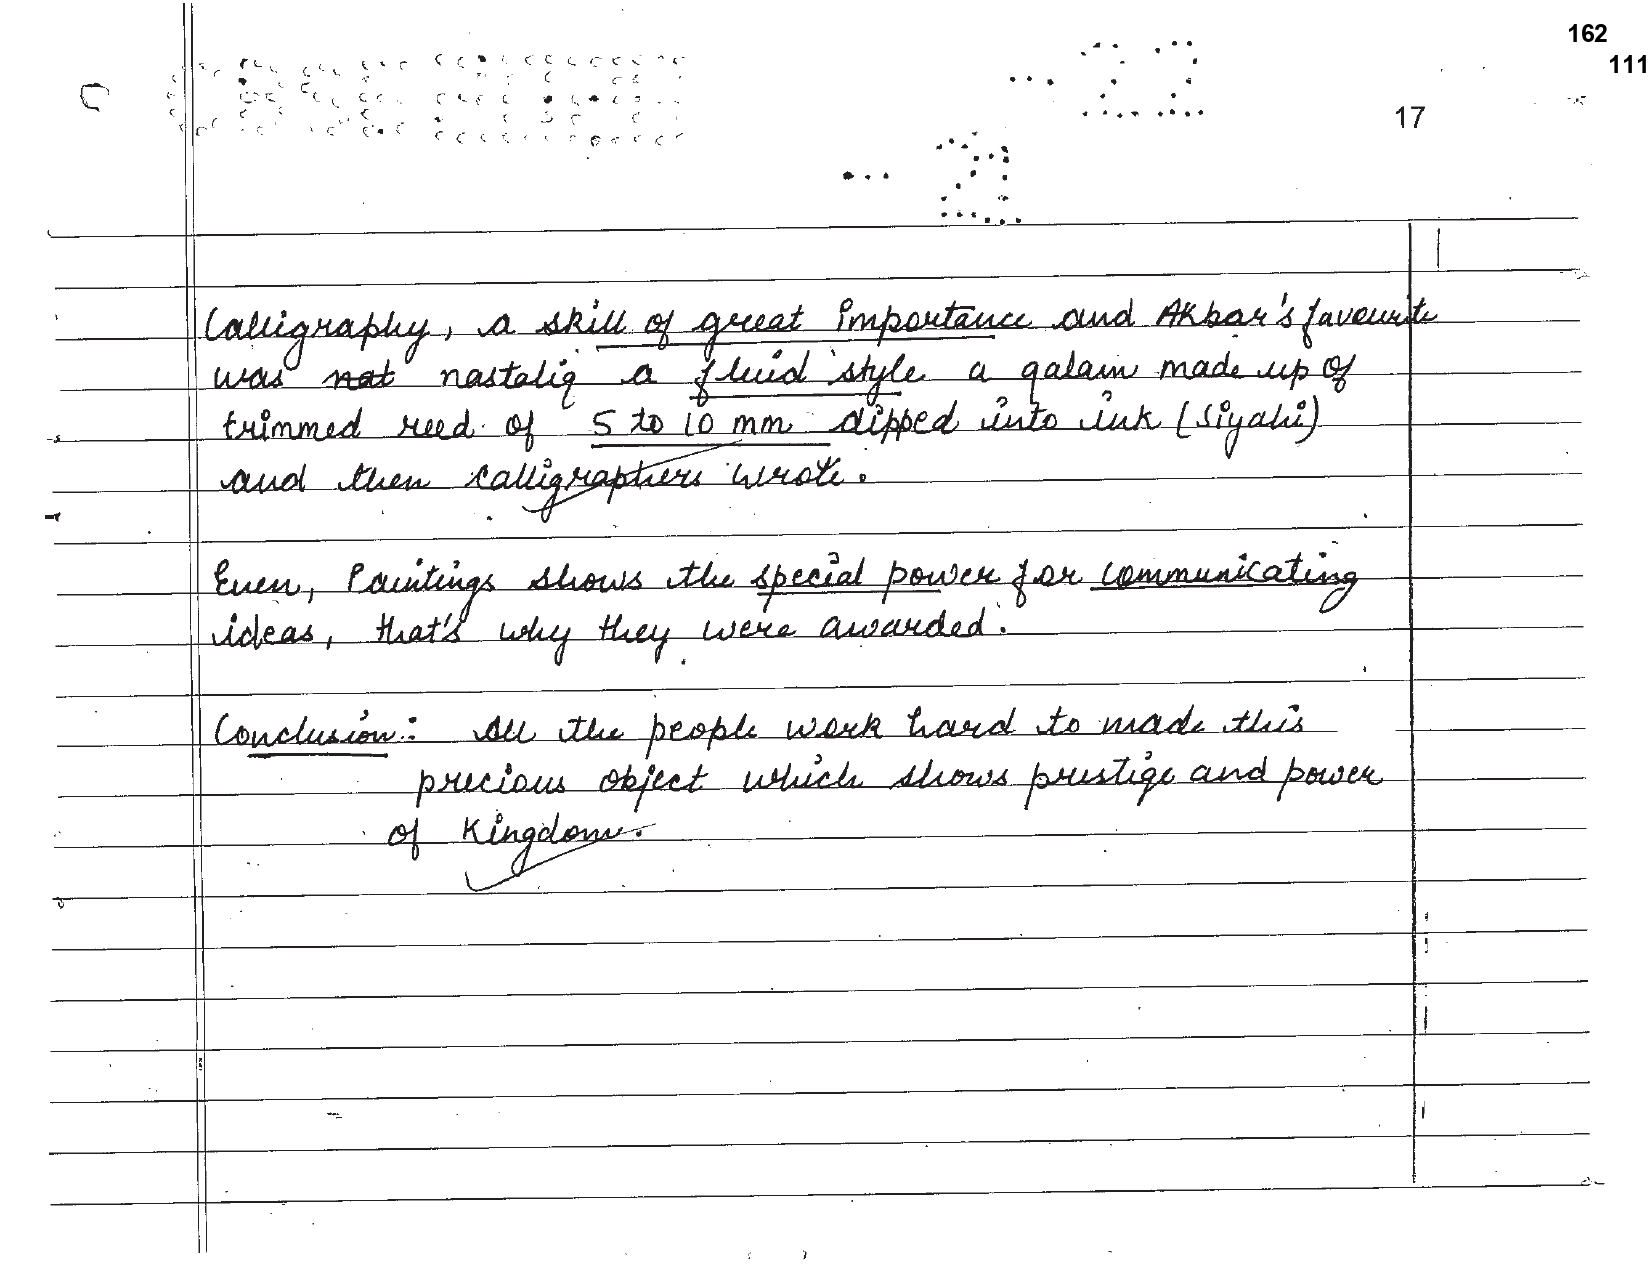 162
111
17
Calligraphy, a skill of great importance and Akbar's favourite
was not nastaliq a fluid style a qalam made up of
trimmed reed of 5 to 10 mm dipped into ink (siyahi)
and then calligraphers wrote.
Even, Paintings shows the special power for communicating
ideas, that's why they were awarded.
Conclusion: All the people work hard to made this
precious object which shows prestige and power
of Kingdom.